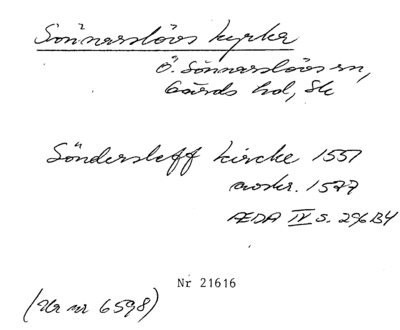 Sönnarslövs kyrka
Ö. Sönnarslövs sn,
Gärds hd, Sk
Söndersleff kircke 1551
avskr. 1577
ÆDA IV s. 296 B4
Nr 21616
(Ur nr 6598)